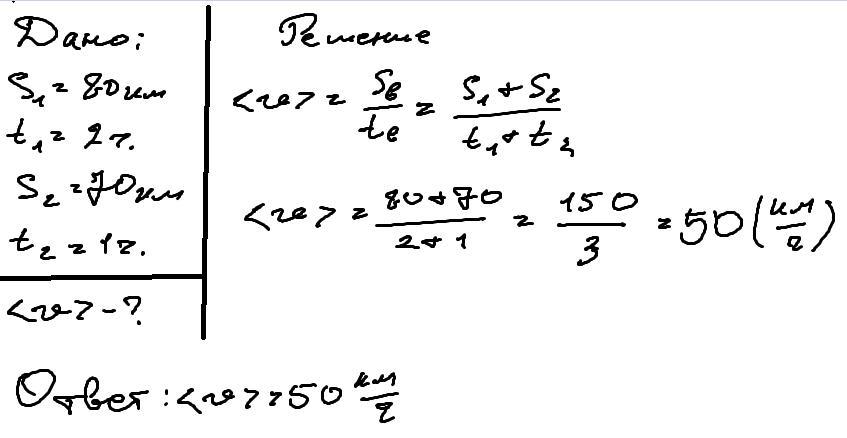 Дано:
S₁ = 80 км
t₁ = 2 ч.
S₂ = 70 км
t₂ = 1 ч.
<v> - ?
Решение
<v> = Sв/tв = (S₁ + S₂)/(t₁ + t₂)
<v> = (80 + 70)/(2 + 1) = 150/3 = 50 (км/ч)
Ответ: <v> = 50 км/ч